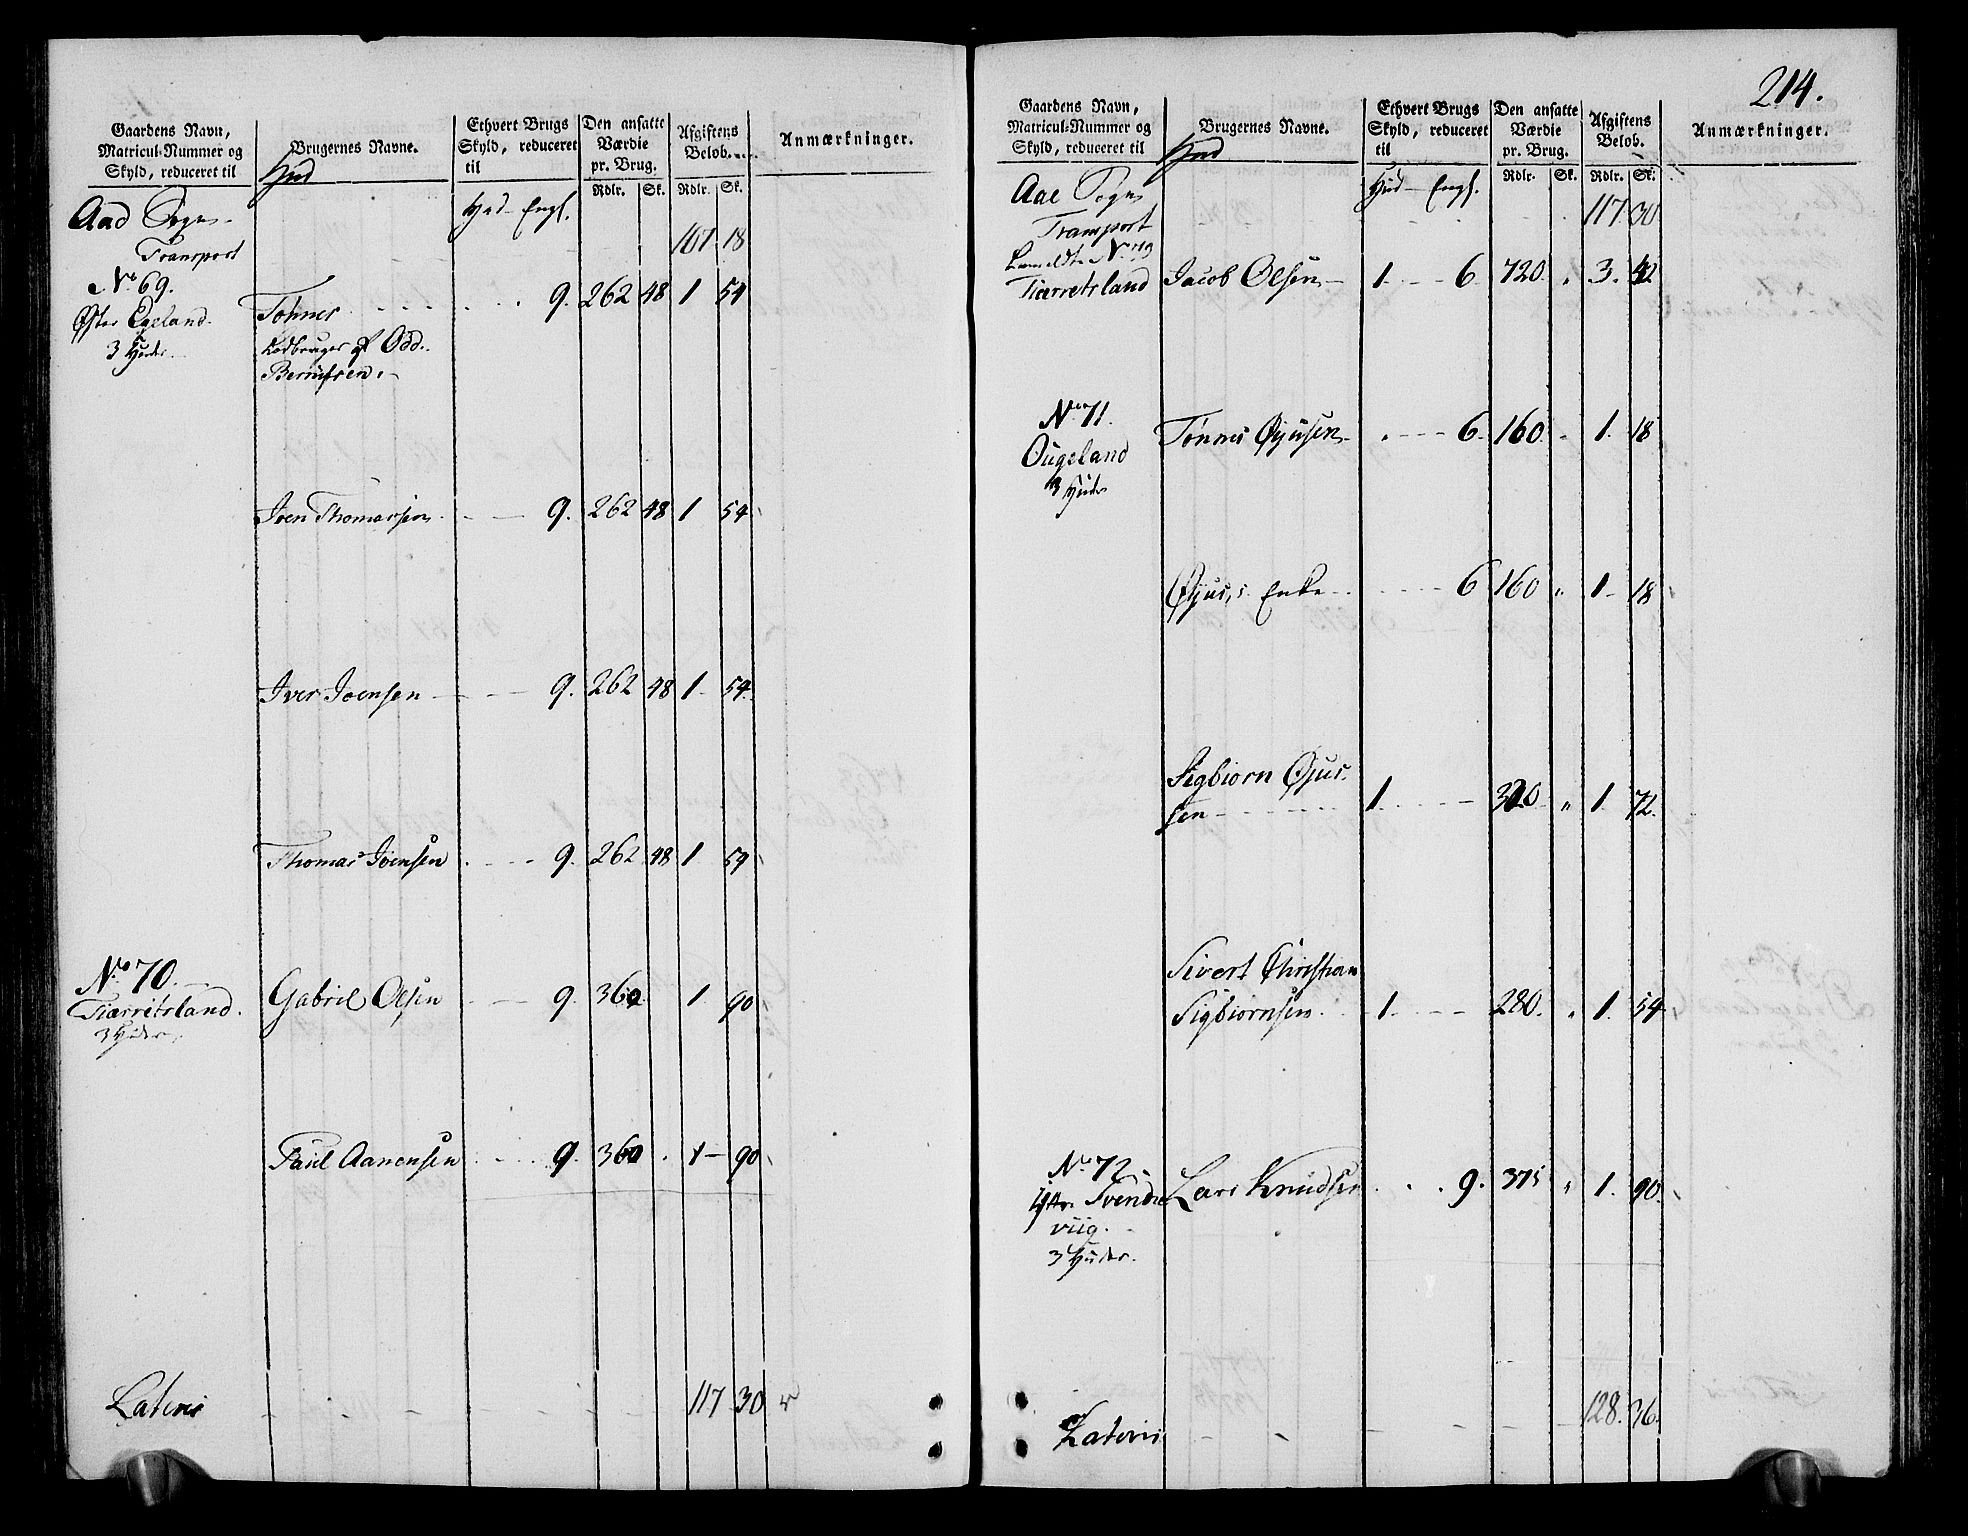 Gaardens Navn,
Matricul-Nummer og
Skyld, reduceret til
Brugernes Navne.
Ethvert Brugs
Skyld, reduceret
til
Den ansatte
Værdie
pr. Brug.
Rdlr. Sk.
Afgiftens
Beløb.
Rdlr. Sk.
Anmærkninger.
Hud
Hud Engl.
Aad Sogn
Transport 107 18
No 69. Tønnes 9. 262 48 1 54
Øster Egeland
3 Huder
Lodbruger af Odd
Berntsen
Joen Thomassen 9. 262 48 1 54
Iver Joensen 9. 262 48 1 54
Thomas Joensen 9. 262 48 1 54
No 70. Gabriel Olsen 9 360 1 90
Tiærretsland.
3 Huder
Paul Aanensen 9 360 1 90
Lateris 117 30
214.
Gaardens Navn,
Matricul-Nummer og
Skyld, reduceret til
Brugernes Navne.
Ethvert Brugs
Skyld, reduceret
til
Den ansatte
Værdie
pr. Brug.
Rdlr. Sk.
Afgiftens
Beløb.
Rdlr. Sk.
Anmærkninger.
Hud
Hud Engl.
Aae Sogn
Transport 117 30
Tiærretsland Jacob Olsen 1 6 720 " 3. 42
No 71. Tønnes Øjusen 6. 160 1. 18
Ougeland
3 Huder
Øjus,s Enke 6 160 " 1 18
Sigbiorn Øjus-
sen 1 320 " 1 72.
Sivert Christian
Sigbiornsen 1. 280. " 1. 54
No 72. Lars Knudsen 9. 375 " 1. 90.
Svend
viig.
3 Huder.
Lateris 128. 36.